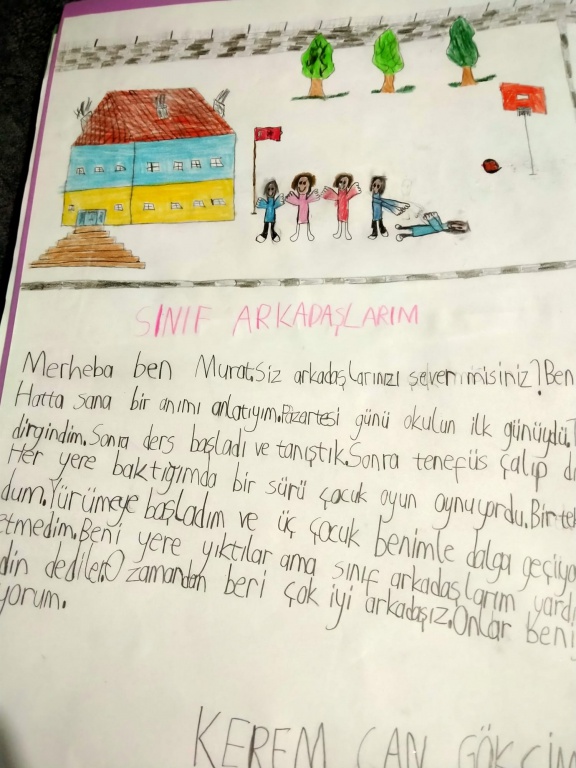 SINIF ARKADAŞLARIM
Merheba ben Murat.Siz arkadaşlarınızı severmisiniz?Ben
Hatta sana bir anımı anlatıyım.Pazartesi günü okulun ilk günüydü.
dirgindim.Sonra ders başladı ve tanıştık.Sonra tenefüs çalıp
Her yere baktığımda bir sürü çocuk oyun oynuyordu.Bir
dum.Yürümeye başladım ve üç çocuk benimle dalga geçiyo
etmedim.Beni yere yıktılar ama sınıf arkadaşlarım yard
din dediler.O zamandan beri çok iyi arkadaşız.Onlar beni
yorum.
KEREM CAN